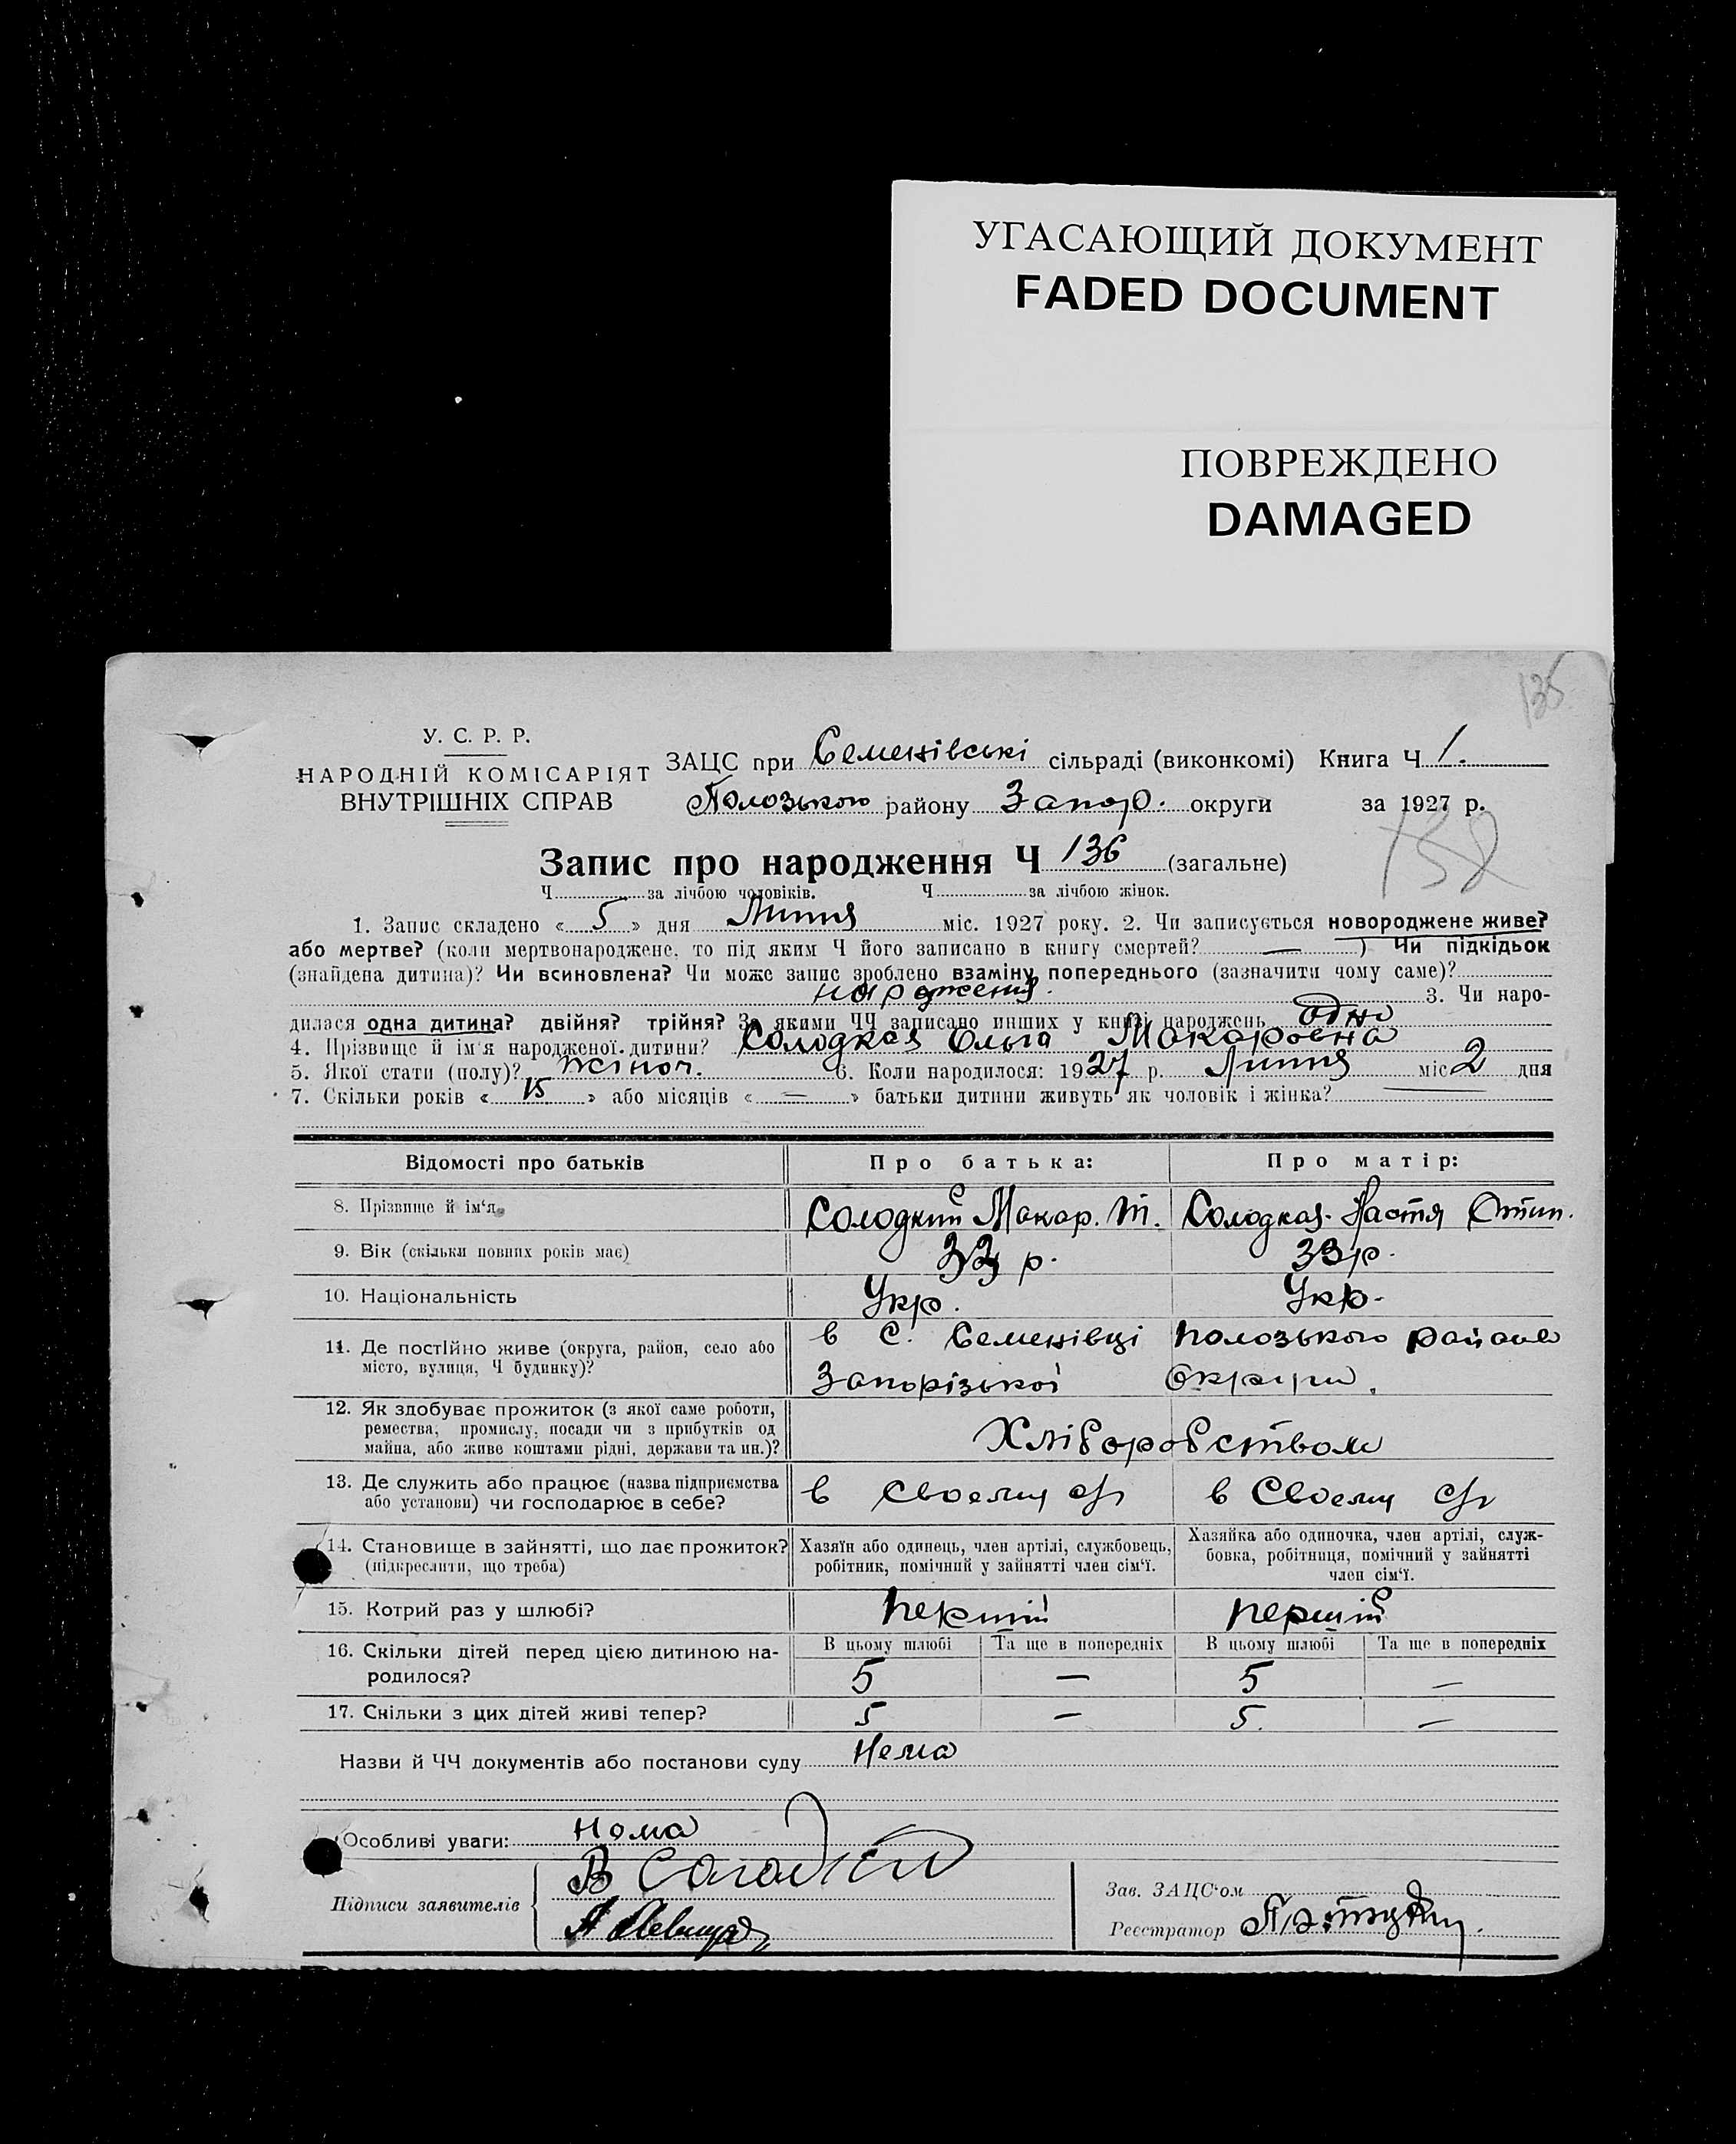 УГАСАЮЩИЙ ДОКУМЕНТ
FADED DOCUMENT
ПОВРЕЖДЕНО
DAMAGED
135
У. С. Р. Р.
НАРОДНІЙ КОМІСАРІЯТ
ВНУТРІШНІХ СПРАВ
ЗАЦС при Семенівські сільраді (виконкомі) Книга Ч 1.
Полозького району Запор. округи за 1927 р.
138
Запис про народження Ч 136 (загальне)
Ч за лічбою чоловіків. Ч за лічбою жінок.
1. Запис складено « 5 » дня Липня міс. 1927 року. 2. Чи записується новороджене живе?
або мертве? (коли мертвонароджене, то під яким Ч його записано в книгу смертей? — ) Чи підкідьок
(знайдена дитина)? Чи всиновлена? Чи може запис зроблено взаміну попереднього (зазначити чому саме)?
народження. 3. Чи наро-
дилася одна дитина? двійня? трійня? За якими ЧЧ записано инших у книзі народжень одно
4. Прізвище й ім'я народженої дитини? Солодкая Ольга Макаровна
5. Якої стати (полу)? жіноч. 6. Коли народилося: 1927 р. Липня міс 2 дня
7. Скільки років « 15 » або місяців « — » батьки дитини живуть як чоловік і жінка?
Відомості про батьків Про батька: Про матір:
8. Прізвище й ім'я Солодкий Макар. Т. Солодкая Настя Стип.
9. Вік (скільки повних років має) 33 р. 33 р.
10. Національність Укр. Укр.
11. Де постійно живе (округа, район, село або
місто, вулиця, Ч будинку)?
в с. Семенівці Полозького району
Запорізької округи.
12. Як здобуває прожиток (з якої саме роботи,
ремества, промислу, посади чи з прибутків од
майна, або живе коштами рідні, держави та ин.)?
Хліборобством
13. Де служить або працює (назва підприємства
або установи) чи господарює в себе?
в своему в своему
14. Становище в зайнятті, що дає прожиток?
(підкреслити, що треба)
Хазяїн або одинець, член артілі, службовець,
робітник, помічний у зайнятті член сім'ї.
Хазяйка або одиночка, член артілі, служ-
бовка, робітниця, помічний у зайнятті
член сім'ї.
15. Котрий раз у шлюбі? перший перший
16. Скільки дітей перед цією дитиною на-
родилося?
В цьому шлюбі Та ще в попередніх В цьому шлюбі Та ще в попередніх
5 — 5 —
17. Скільки з цих дітей живі тепер? 5 — 5. —
Назви й ЧЧ документів або постанови суду Нема
Особливі уваги: Нема
Підписи заявителів
Зав. ЗАЦС'ом
Реєстратор